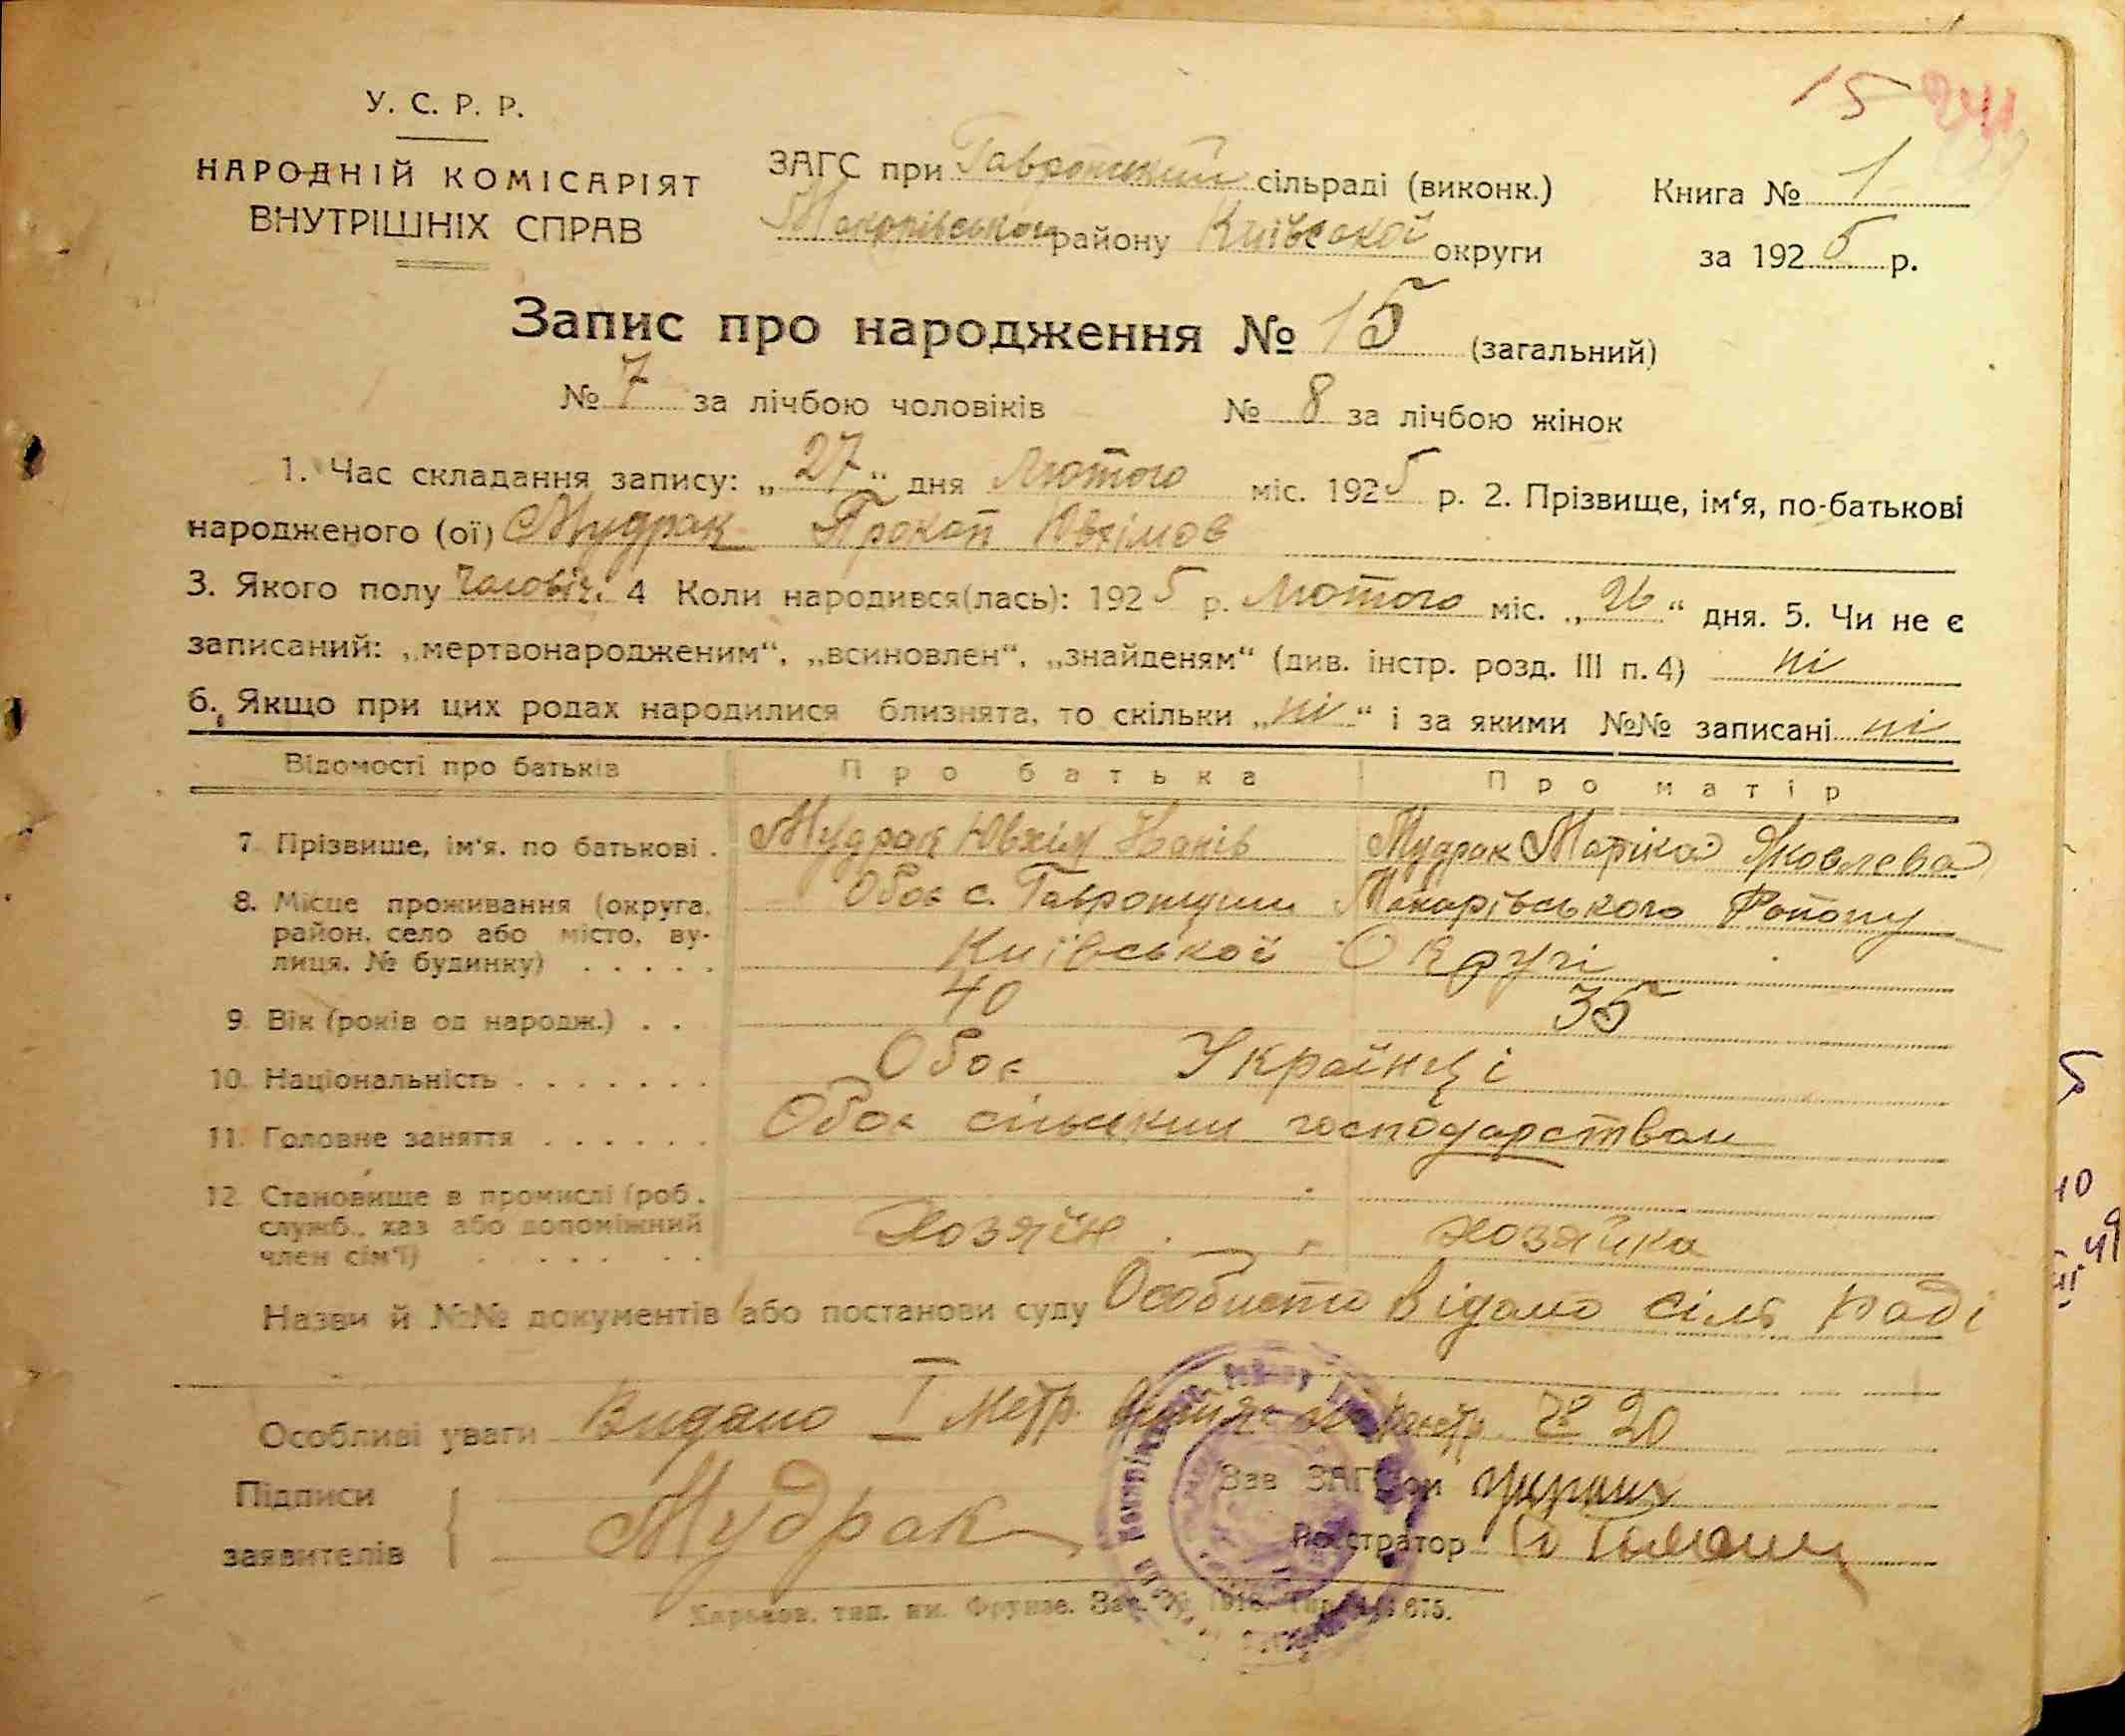 15
У. С. Р. Р.
НАРОДНІЙ КОМІСАРІЯТ
ВНУТРІШНІХ СПРАВ
ЗАГС при Гавронський сільраді (виконк.)
Макарівського району Київської округи
Книга № 1
за 1925 р.
Запис про народження № 15 (загальний)
№ 7 за лічбою чоловіків № 8 за лічбою жінок
1. Час складання запису: „27" дня Лютого міс. 1925 р. 2. Прізвище, ім'я, по-батькові
народженого (ої) Мудрак Прокоп Ювхімов
3. Якого полу Чоловіч. 4 Коли народився(лась): 1925 р. Лютого міс. „26" дня. 5. Чи не є
записаний: „мертвонародженим", „всиновлен", „знайденям" (див. інстр. розд. III п. 4) ні
6. Якщо при цих родах народилися близнята, то скільки „ні" і за якими №№ записані ні
Відомості про батьків Про батька Про матір
7. Прізвише, ім'я. по батькові . Мудрак Ювхім Іванів Мудрак Мотріка Яковлева
8. Місце проживання (округа, район, село або місто, ву-
лиця, № будинку) . . . . . Обоє с. Гавронщини Макарівського Району
Київської Округі
9. Вік (років од народж.) . . 40 35
10. Національність . . . . . . . Обоє Українці
11. Головне заняття . . . . . . Обоє сільским господарством
12. Становище в промислі (роб.
служб., хаз або допоміжний
член сім'ї) . . . . . . Хозяїн хозяйка
Назви й №№ документів або постанови суду Особисто відомо сіль раді
Особливі уваги Видано I метр. № 20
Підписи
заявителів Мудрак
Зав ЗАГСом
Реєстратор
Харьков, тип. им. Фрунзе. Зак. № 1916. 675.